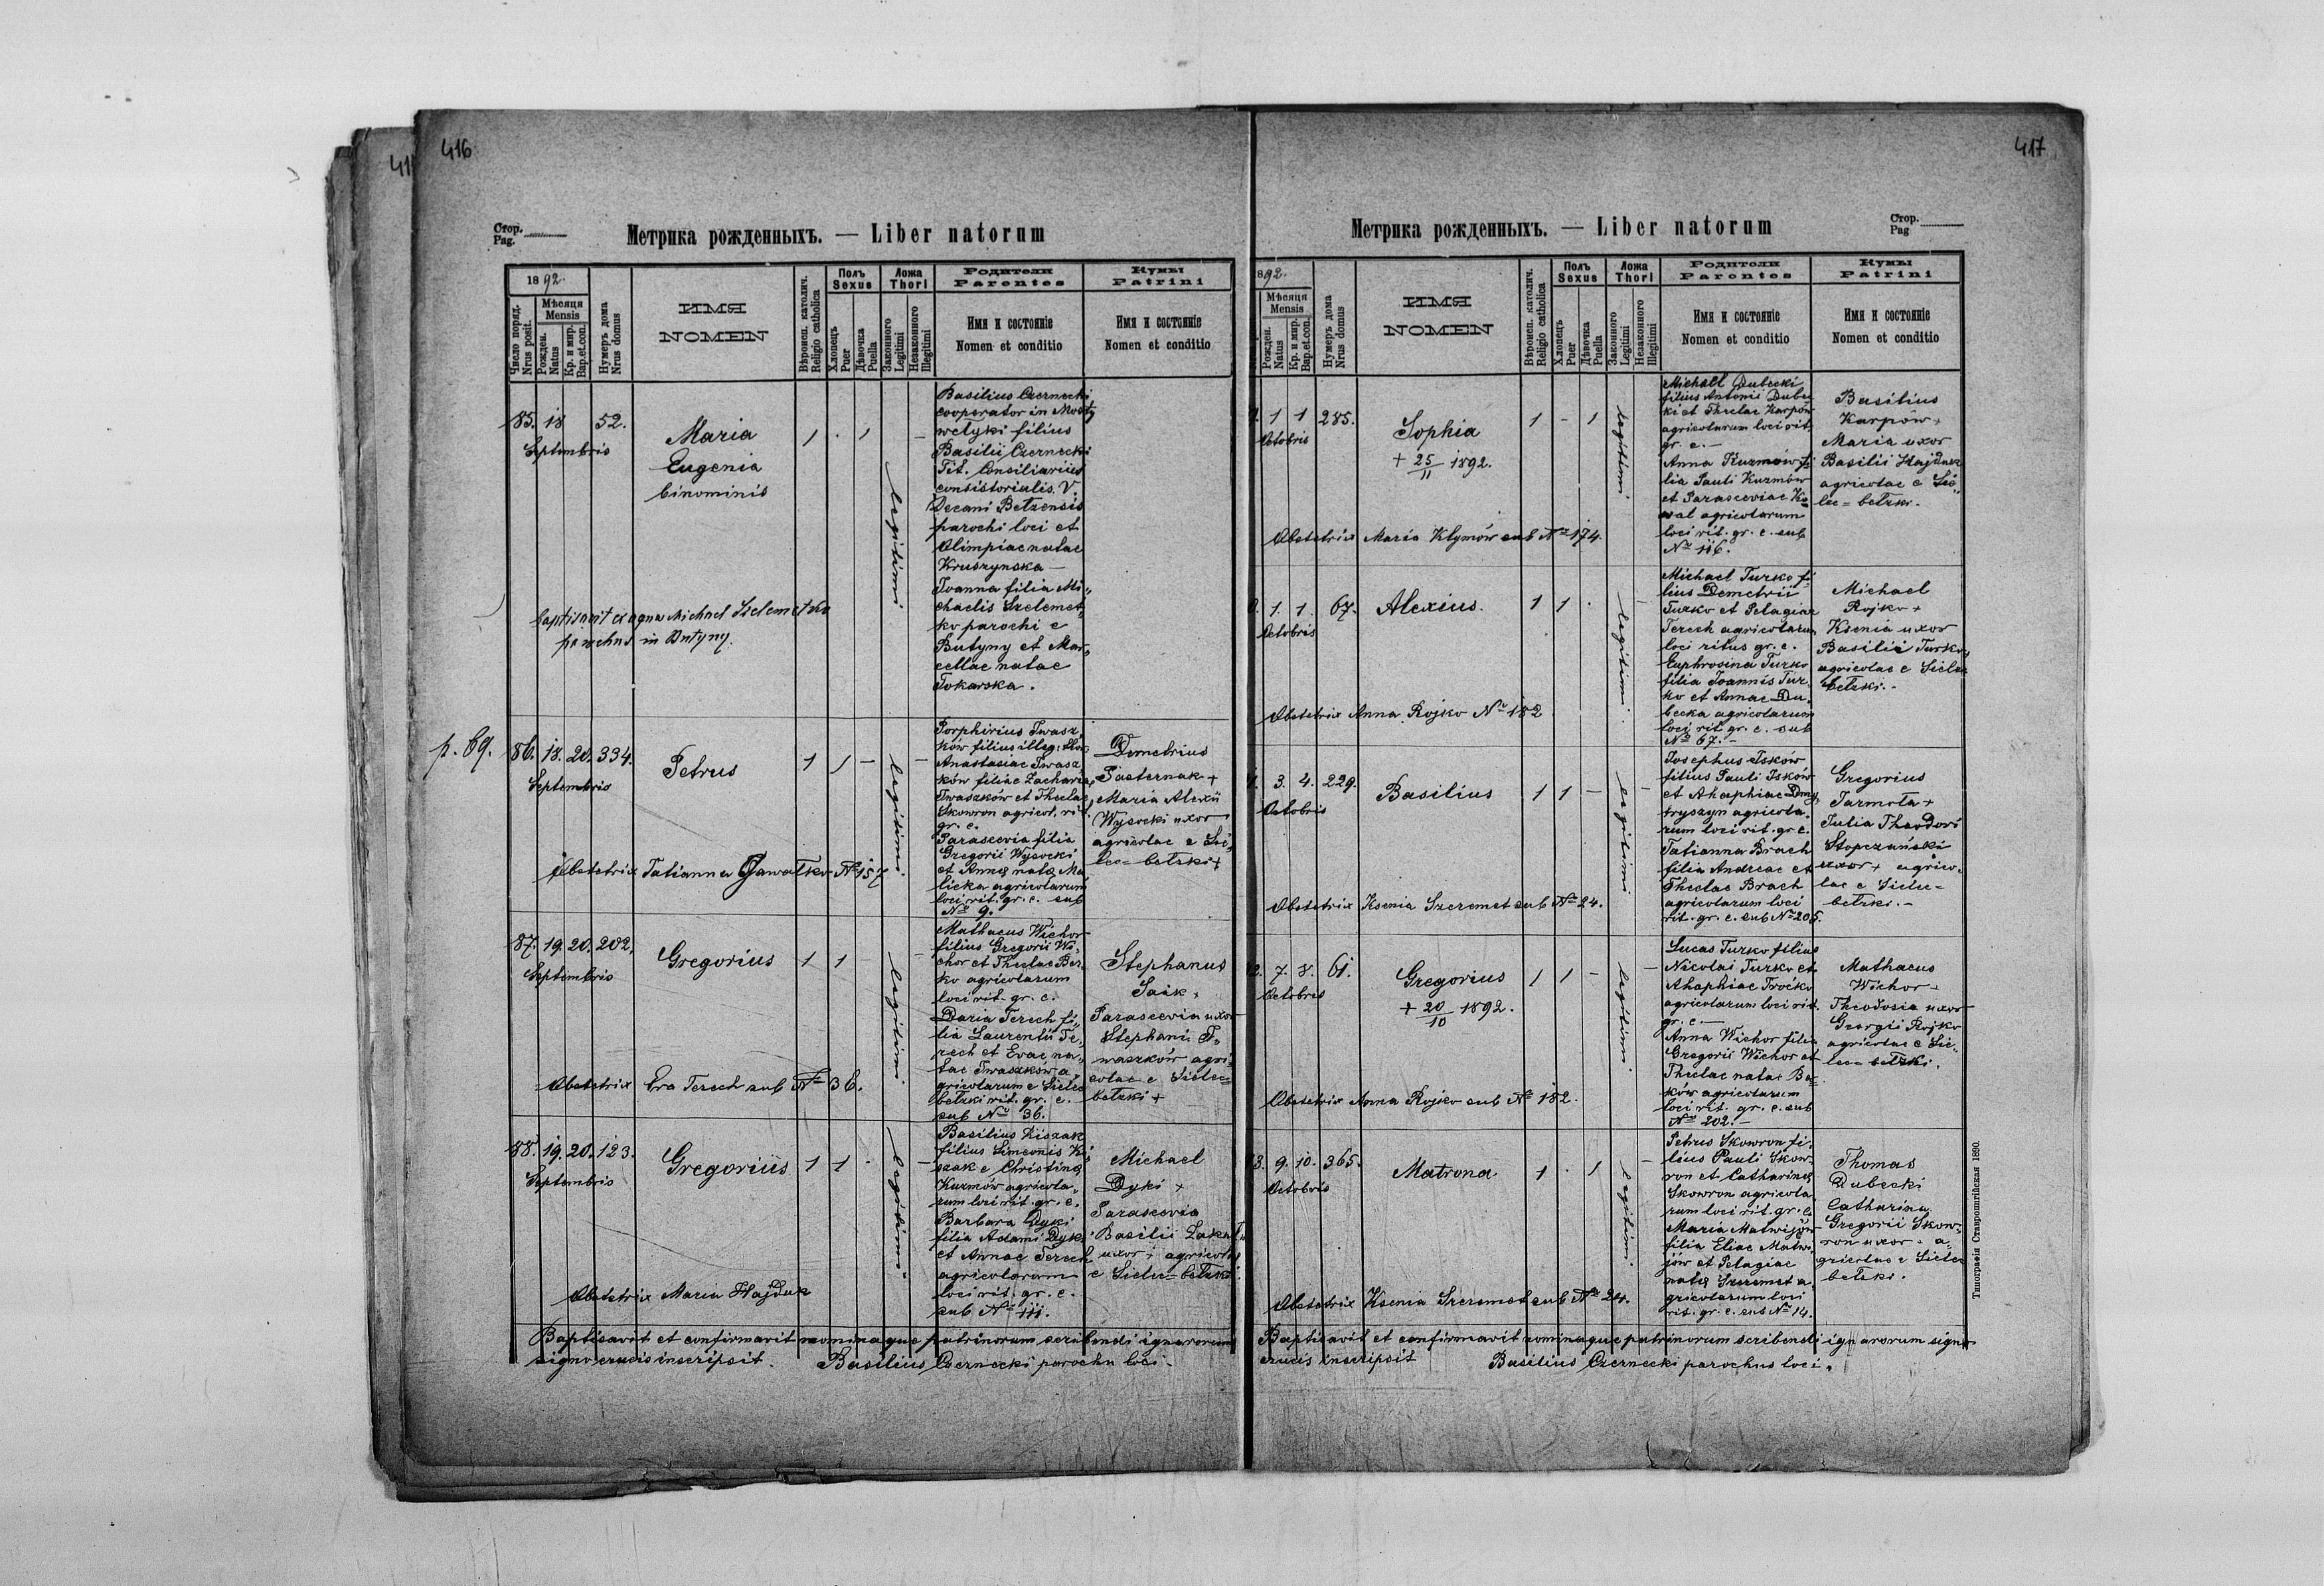 416
Стор.
Pag.
Метрика рожденныхъ. — Liber natorum
1892.
Число поряд.
Nrus posit.
Мѣсяця
Mensis
Рожден.
Natus
Кр. и мир.
Bap. et con.
Нумеръ дома
Nrus domus
ИМЯ
NOMEN
Вѣроисп. католич.
Religio catholica
Полъ
Sexus
Хлопець
Puer
Дѣвочка
Puella
Ложа
Thori
Законного
Legitimi
Незаконного
Illegitimi
Родители
Parentes
Имя и состояніе
Nomen et conditio
Кумы
Patrini
Имя и состояніе
Nomen et conditio
85. 18 52.
Septembris
Maria
Eugenia
binominis
1 . 1 –
legitimi
Basilius Czernecki
cooperator in Mosty
welyki filius
Basilii Czernecki
Tit. Consiliarius
consistorialis. V.
Decani Betzensis
parochi loci et
Olimpiae natae
Kruszynska —
Joanna filia Mi„
chaelis Szelemet„
ko parochi e
Butyny et Mar„
cellae natae
Tokarska.
baptisavit ex aqua Michael Szelemetko
parochus in Butyny.
p. 69.
86. 18. 20. 334.
Septembris
Petrus
1 1 – –
legitimi
Porphirius Iwasz„
ków filius illeg:
Anastasiae Iwasz
ków filiae Zachariae
Iwaszków et Theclae
Skowron agricol. rit.
gr. c.
Parascevia filia
Gregorii Wysocki
et Annae natae Ma
licka agricolarum
loci rit. gr. c. sub
No 9.
Demetrius
Pasternak +
Maria Alexii
Wysocki uxor
agricolae e Sie„
lec=betzki +
Obstetrix Tatianna Gawalko No 157
87. 19. 20. 202.
Septembris
Gregorius
1 1 – –
legitimi
Mathaeus Wichor
filius Gregorii Wi„
chor et Theclae Bez„
ko agricolarum
loci rit. gr. c.
Daria Terech fi„
lia Laurentii Te„
rech et Evae na„
tae Iwaszkow a„
gricolarum e Sielec
betzki rit. gr. c.
sub No 36.
Stephanus
Saik +
Parascevia uxor
Stephani I„
waszków agri„
colae e Sielec=
betzki +
Obstetrix Eva Terech sub No 36.
88. 19. 20. 123.
Septembris
Gregorius
1 1 . –
legitimi
Basilius Kiszak
filius Simeonis Ki„
szak e Christina
Kuzmów agricola„
rum loci rit. gr. c.
Barbara Dyki
filia Adami Dyki
et Annae Terech
agricolarum
loci rit. gr. c.
sub No 111.
Michael
Dyki +
Parascevia
Basilii
uxor + agricolae
e Sielec=betzki.
Obstetrix Maria Hajduk
Baptisavit et confirmavit nominaque patrinorum scribendi ignarorum
signo crucis inscripsit. Basilius Czernecki parochu loci.
417
Метрика рожденныхъ. — Liber natorum
Стор.
Pag
1892.
Мѣсяця
Mensis
Рожден.
Natus
Кр. и мир.
Bap. et con.
Нумеръ дома
Nrus domus
ИМЯ
NOMEN
Вѣроисп. католич.
Religio catholica
Полъ
Sexus
Хлопець
Puer
Дѣвочка
Puella
Ложа
Thori
Законного
Legitimi
Незаконного
Illegitimi
Родители
Parentes
Имя и состояніе
Nomen et conditio
Кумы
Patrini
Имя и состояніе
Nomen et conditio
1 1 285.
Octobris
Sophia
+ 25/11 1892.
1 – 1 –
legitimi
Michael Dubecki
filius Antonii Dube„
ki et Theclae Karpów
agricolarum loci rit.
gr. c. —
Anna Kuzmów fi„
lia Pauli Kuzmów
et Parasceviae Ko„
wal agricolarum
loci rit. gr. c. sub
No 116.
Basilius
Karpów +
Maria uxor
Basilii Hajduk
agricolae e Sie„
lec=betzki.
Obstetrix Maria Klymów sub No 174.
1. 1. 67.
Octobris
Alexius.
1 1 .
legitimi
Michael Turko fi„
lius Demetrii
Turko et Pelagiae
Terech agricolarum
loci ritus gr. c.
Euphrosina Turko
filia Joannis Tur„
ko et Annae Du„
becka agricolarum
loci rit. gr. c. sub
No 67. —
Michael
Rojko +
Ksenia uxor
Basilii Turko
agricolae e Sielec
betzki. -
Obstetrix Anna Rojko No 182
3. 4. 229.
Octobris
Basilius
1 1 – –
legitimi
Josephus Isków
filius Pauli Isków
et Ahaphiae Dmy„
tryszyn agricola„
rum loci rit. gr c.
Tatianna Brach
filia Andreae et
Theclae Brach
agricolarum loci
rit. gr. c. sub No 205.
Gregorius
Jarmola +
Julia Theodori
Stopczański
uxor + agrico„
lae e Sielec=
betzki. -
Obstetrix Ksenia Szeremet sub No 24.
7. 8. 61.
Octobris
Gregorius
+ 20/10 1892.
1 1 – –
legitimi
Lucas Turko filius
Nicolai Turko et
Ahaphiae Troćko
agricolarum loci rit.
gr. c —
Anna Wichor filia
Gregorii Wichor et
Theclae natae Be„
ków agricolarum
loci rit. gr. c. sub
No 202. —
Mathaeus
Wichor +
Theodosia uxor
Georgii Rojko
agricolae e Sie„
lec=betzki.
Obstetrix Anna Rojko sub No 182.
9. 10. 365.
Octobris
Matrona
1 . 1 –
legitimi
Petrus Skowron fi„
lius Pauli Skow„
ron et Catharinae
Skowron agricola
rum loci rit. gr. c.
Maria Matwijów
filia Eliae Matwi„
jów et Pelagiae
natae Szeremet a„
gricolarum loci
rit. gr. c. sub No 14.
Thomas
Dubecki
Catharina
Gregorii Skow„
ron uxor + a„
gricolae e Sielec
betzki.
Obstetrix Ksenia Szeremet sub No 24.
Baptisavit et confirmavit nominaque patrinorum scribendi ignarorum signo
crucis inscripsit Basilius Czernecki parochus loci.
Типографія Ставропигійская 1890.